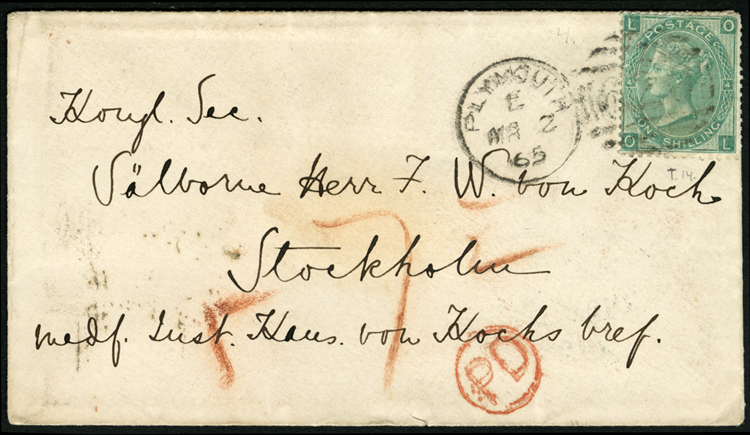 L O
POSTAGE
ONE SHILLING
O L
T.14.
PLYMOUTH
E
MR 2
65
Kongl. Sec.
Välborne Herr F. W. von Koch
Stockholm
medf. Just. Kans. von Kochs bref.
PD